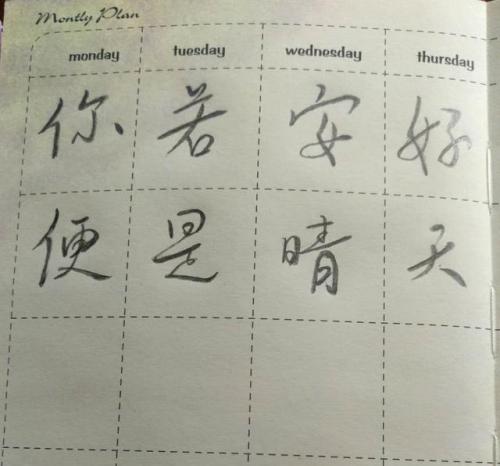 Montly Plan
monday tuesday wednesday thursday
你若安好
便是晴天